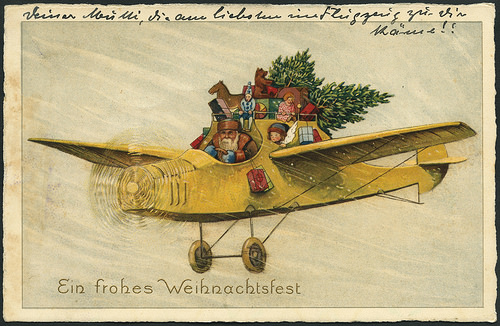 Deiner Mutti, die am liebsten im Flugzeug zu dir
käme!!
Ein frohes Weihnachtsfest